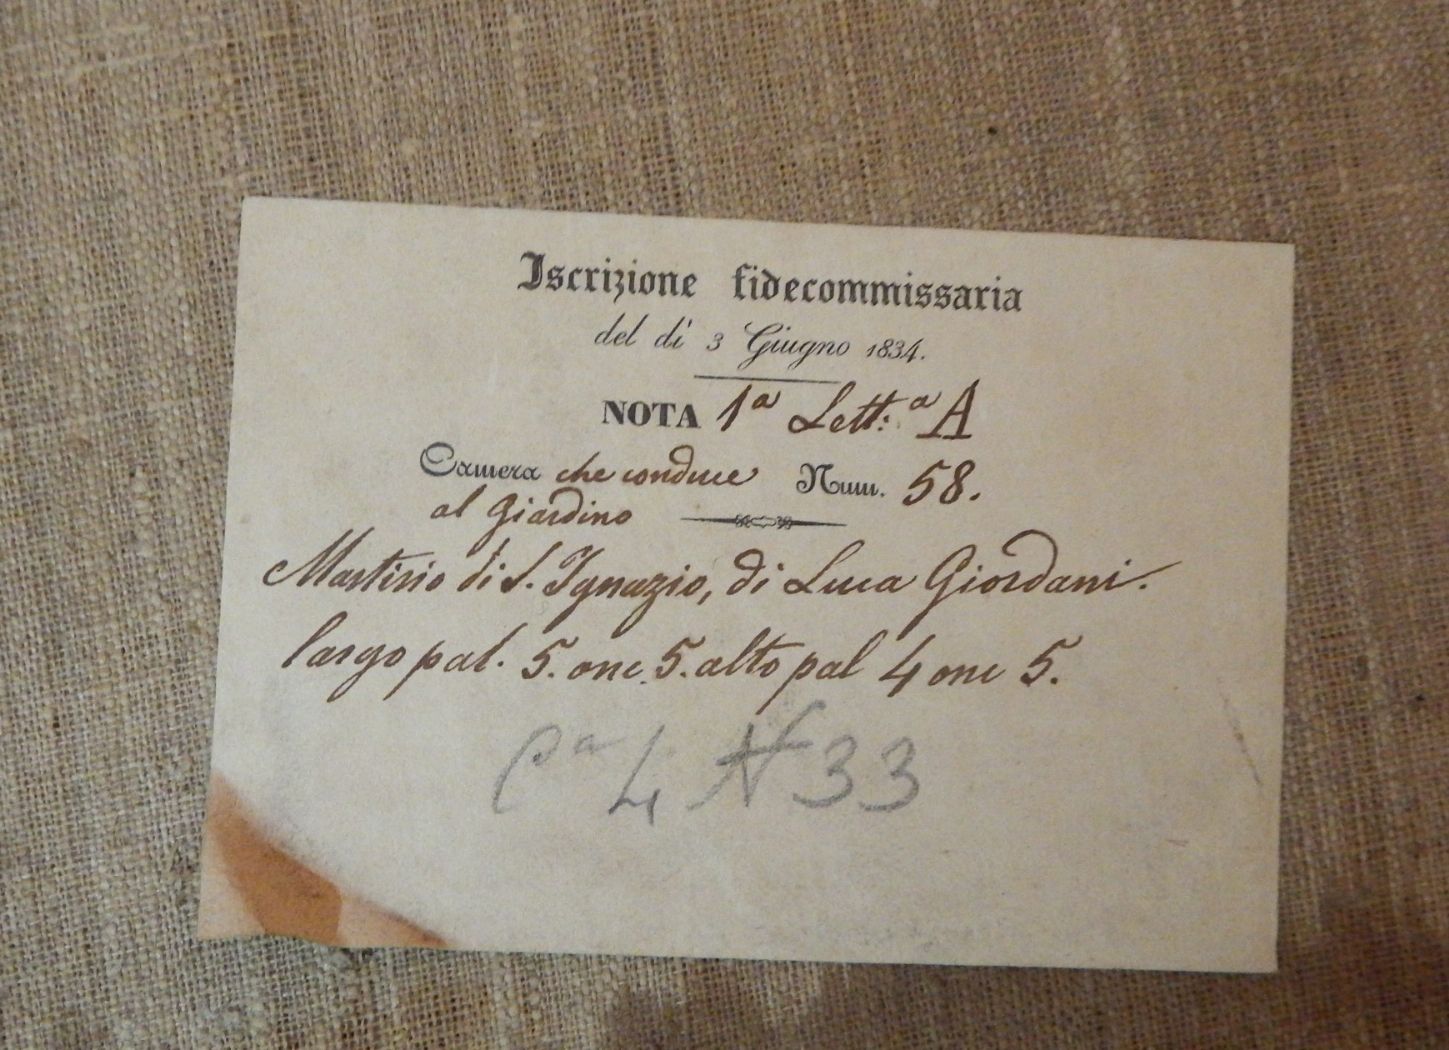 Iscrizione fidecommissaria
del di 3 Giugno 1834.
NOTA 1ª Lett:ª A
Camera che conduce Num. 58.
al Giardino
Martirio di S. Ignazio, di Luca Giordani.
largo pal. 5. onc. 5. alto pal 4 onc 5.
Cª 4 N 33